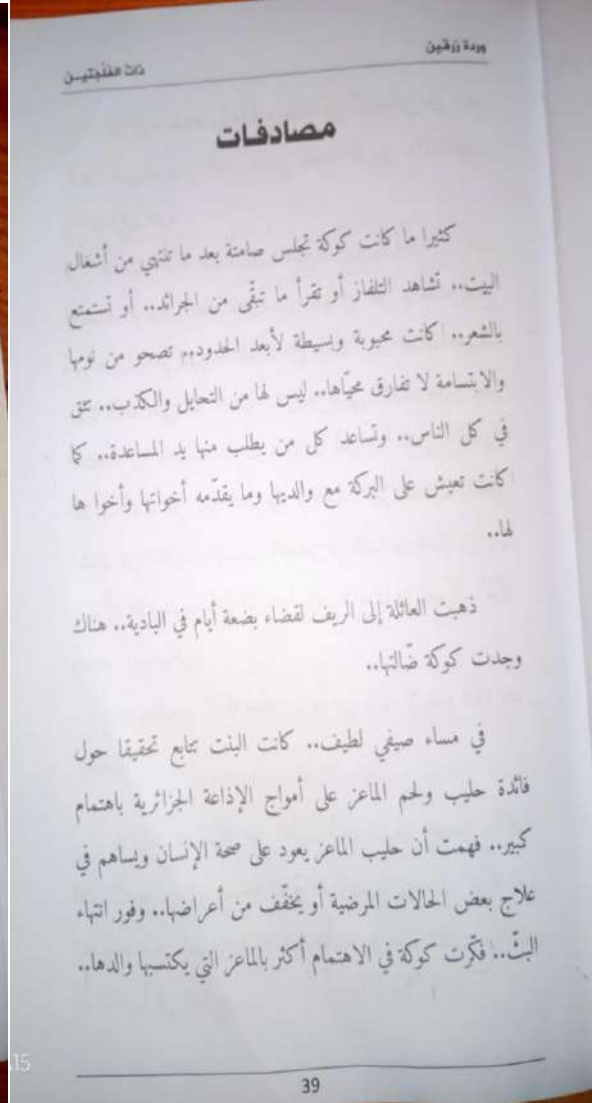 وردة زرقين
ذات الفلجتيـن
مصادفات
كثيرا ما كانت كوكة تجلس صامتة بعد ما تنتهي من أشغال
البيت.. تشاهد التلفاز أو تقرأ ما تبقّى من الجرائد.. أو تستمتع
بالشعر.. كانت محبوبة وبسيطة لأبعد الحدود.. تصحو من نومها
والابتسامة لا تفارق محيّاها.. ليس لها من التحايل والكذب.. تثق
في كل الناس.. وتساعد كل من يطلب منها يد المساعدة.. كما
كانت تعيش على البركة مع والديها وما يقدّمه أخواتها وأخوا ها
لها..
ذهبت العائلة إلى الريف لقضاء بضعة أيام في البادية.. هناك
وجدت كوكة ضّالتها..
في مساء صيفي لطيف.. كانت البنت تتابع تحقيقا حول
فائدة حليب ولحم الماعز على أمواج الإذاعة الجزائرية باهتمام
كبير.. فهمت أن حليب الماعز يعود على صحة الإنسان ويساهم في
علاج بعض الحالات المرضية أو يخفّف من أعراضها.. وفور انتهاء
البثّ.. فكّرت كوكة في الاهتمام أكثر بالماعز التي يكتسبها والدها..
15
39